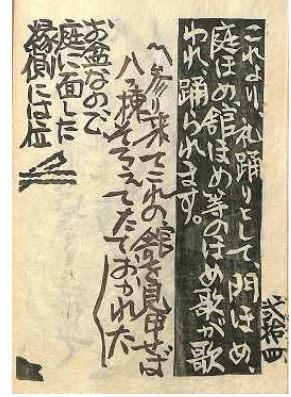 これより、礼踊りとして、門ほめ、
庭ほめ、舘ほめ等のほめ歌が歌
われ踊られます。
弐拾四
〽参り来てこれの舘を見申せば
八つ棟そろえてたておかれた
お盆なので
庭に面した
縁側には位